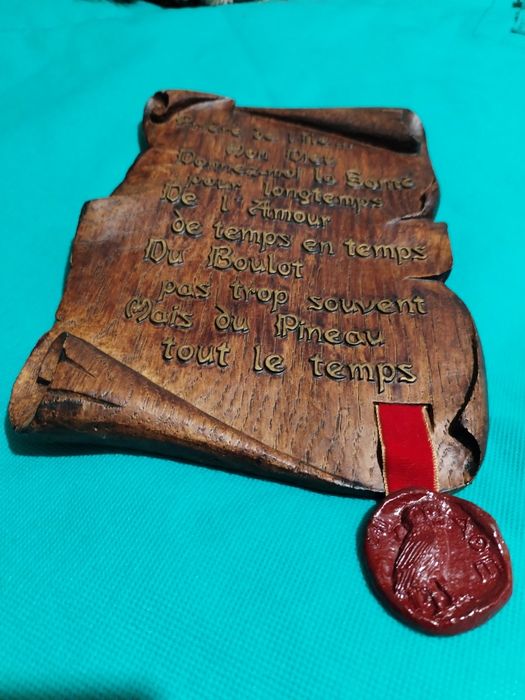 Mon Dieu
Donnez-moi la Santé
pour longtemps
De l'Amour
de temps en temps
Du Boulot
pas trop souvent
Mais du Pineau
tout le temps